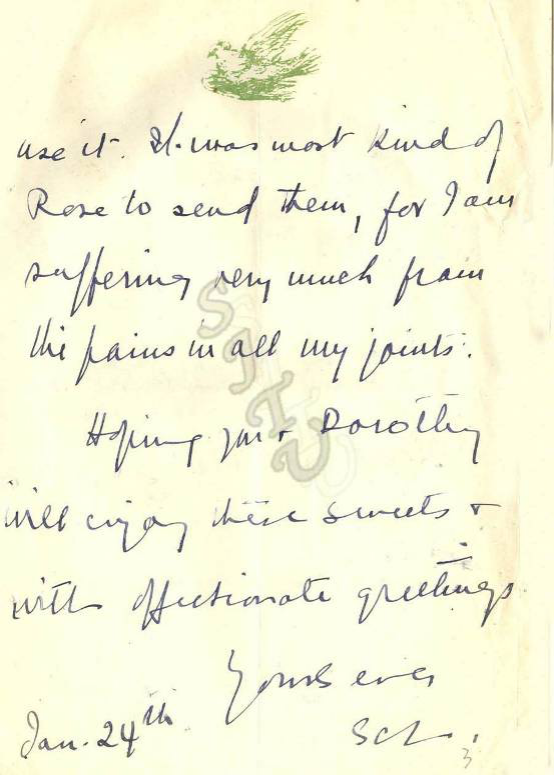 use it. It was most kind of
Rose to send them, for I am
suffering very much from
the pains in all my joints.
Hoping you & Dorothy
will enjoy these sweets &
with affectionate greetings
Yours ever
Jan. 24th
3
SITU